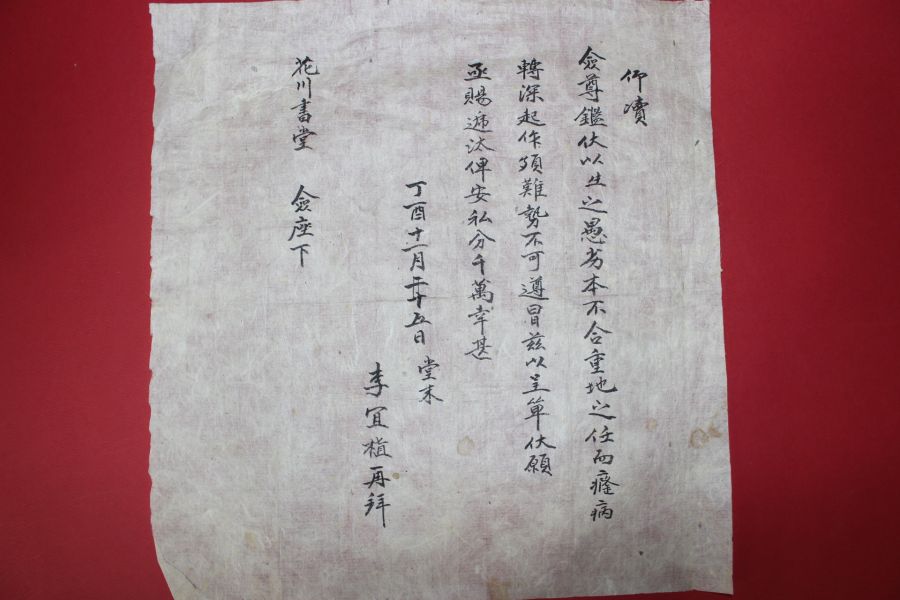 仰瀆
僉尊鑑伏以生之愚劣本不合重地之任而癃病
轉深起作須難勢不可遵冒玆以呈單伏願
亟賜遞汰俾安私分千萬幸甚
丁酉十二月二十五日 堂末
李宜植再拜
花川書堂 僉座下